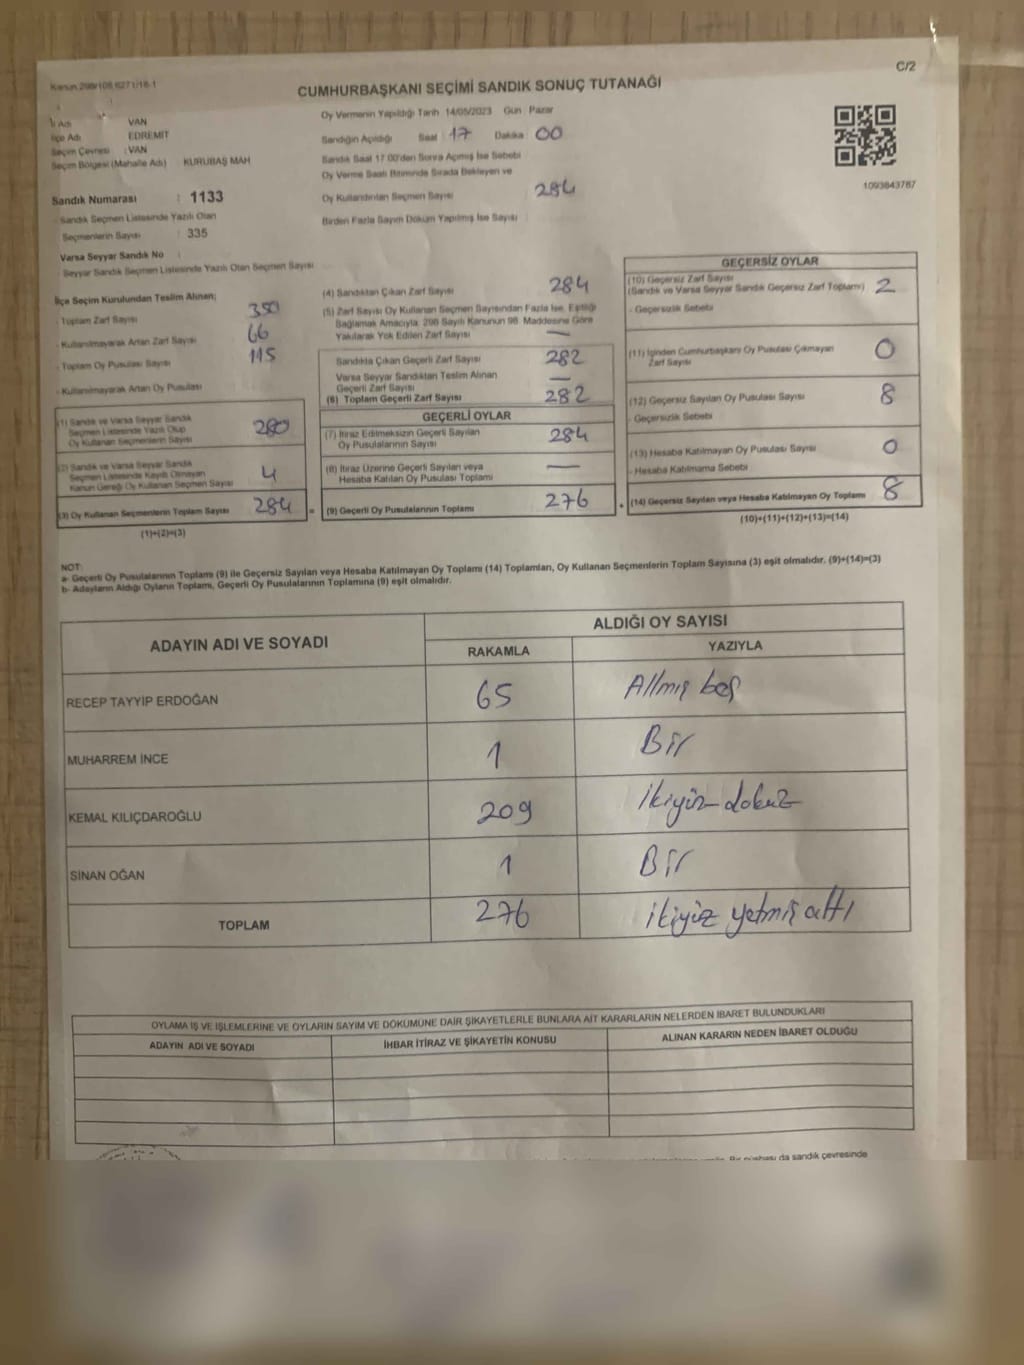 C/2
CUMHURBAŞKANI SEÇİMİ SANDIK SONUÇ TUTANAĞI
İl Adı VAN
İlçe Adı EDREMİT
Seçim Çevresi : VAN
Seçim Bölgesi (Mahalle Adı) : KURUBAŞ MAH
Sandık Numarası : 1133
- Sandık Seçmen Listesinde Yazılı Olan
Seçmenlerin Sayısı : 335
Varsa Seyyar Sandık No :
- Seyyar Sandık Seçmen Listesinde Yazılı Olan Seçmen Sayısı
Oy Vermenin Yapıldığı Tarih 14/05/2023 Gün : Pazar
Sandığın Açıldığı Saat : 17 Dakika : 00
Sandık Saat 17:00'den Sonra Açılmış İse Sebebi
Oy Verme Saati Bitiminde Sırada Bekleyen ve
Oy Kullandırılan Seçmen Sayısı 284
Birden Fazla Sayım Döküm Yapılmış İse Sayısı
1093843787
İlçe Seçim Kurulundan Teslim Alınan;
- Toplam Zarf Sayısı 350
- Kullanılmayarak Artan Zarf Sayısı 66
- Toplam Oy Pusulası Sayısı 115
- Kullanılmayarak Artan Oy Pusulası
(1) Sandık ve Varsa Seyyar Sandık
Seçmen Listesinde Yazılı Olup
Oy Kullanan Seçmenlerin Sayısı 280
(2) Sandık ve Varsa Seyyar Sandık
Seçmen Listesinde Kayıtlı Olmayan
Kanun Gereği Oy Kullanan Seçmen Sayısı 4
(3) Oy Kullanan Seçmenlerin Toplam Sayısı 284
(1)+(2)=(3)
(4) Sandıktan Çıkan Zarf Sayısı 284
(5) Zarf Sayısı Oy Kullanan Seçmen Sayısından Fazla İse, Eşitliği
Sağlamak Amacıyla, 298 Sayılı Kanunun 98. Maddesine Göre
Yakılarak Yok Edilen Zarf Sayısı —
Sandıkta Çıkan Geçerli Zarf Sayısı 282
Varsa Seyyar Sandıktan Teslim Alınan
Geçerli Zarf Sayısı —
(6) Toplam Geçerli Zarf Sayısı 282
GEÇERLİ OYLAR
(7) İtiraz Edilmeksizin Geçerli Sayılan
Oy Pusulalarının Sayısı 284
(8) İtiraz Üzerine Geçerli Sayılan veya
Hesaba Katılan Oy Pusulası Toplamı —
= (9) Geçerli Oy Pusulalarının Toplamı 276
GEÇERSİZ OYLAR
(10) Geçersiz Zarf Sayısı
(Sandık ve Varsa Seyyar Sandık Geçersiz Zarf Toplamı) 2
- Geçersizlik Sebebi
(11) İçinden Cumhurbaşkanı Oy Pusulası Çıkmayan
Zarf Sayısı 0
(12) Geçersiz Sayılan Oy Pusulası Sayısı 8
- Geçersizlik Sebebi
(13) Hesaba Katılmayan Oy Pusulası Sayısı 0
- Hesaba Katılmama Sebebi
+ (14) Geçersiz Sayılan veya Hesaba Katılmayan Oy Toplamı 8
(10)+(11)+(12)+(13)=(14)
NOT:
a- Geçerli Oy Pusulalarının Toplamı (9) ile Geçersiz Sayılan veya Hesaba Katılmayan Oy Toplamı (14) Toplamları, Oy Kullanan Seçmenlerin Toplam Sayısına (3) eşit olmalıdır. (9)+(14)=(3)
b- Adayların Aldığı Oyların Toplamı, Geçerli Oy Pusulalarının Toplamına (9) eşit olmalıdır.
ADAYIN ADI VE SOYADI ALDIĞI OY SAYISI
RAKAMLA YAZIYLA
RECEP TAYYİP ERDOĞAN 65 Altmış beş
MUHARREM İNCE 1 Bir
KEMAL KILIÇDAROĞLU 209 İkiyüz dokuz
SİNAN OĞAN 1 Bir
TOPLAM 276 ikiyüz yetmiş altı
OYLAMA İŞ VE İŞLEMLERİNE VE OYLARIN SAYIM VE DÖKÜMÜNE DAİR ŞİKAYETLERLE BUNLARA AİT KARARLARIN NELERDEN İBARET BULUNDUKLARI
ADAYIN ADI VE SOYADI İHBAR İTİRAZ VE ŞİKAYETİN KONUSU ALINAN KARARIN NEDEN İBARET OLDUĞU
da sandık çevresinde